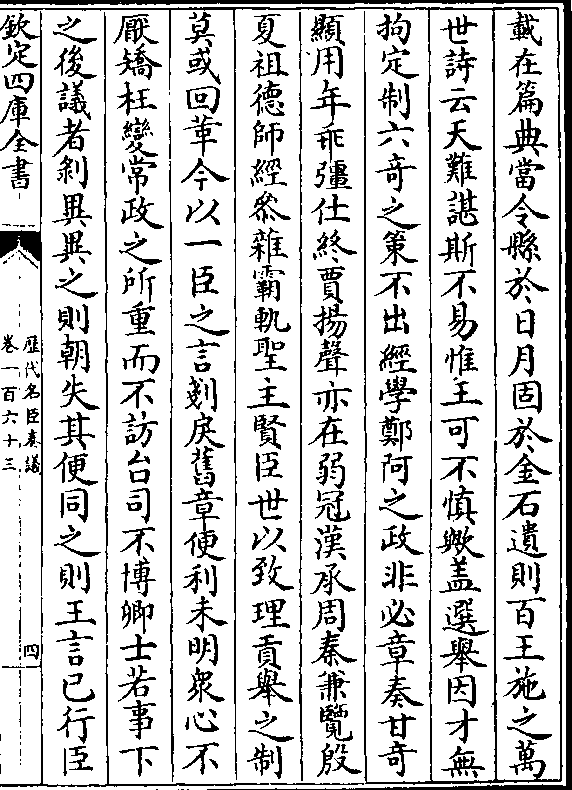 載在篇典當令縣於日月固於金石遺則百王施之萬
世詩云天難諶斯不易惟王可不慎歟盖選舉因才無
拘定制六奇之策不出經學鄭阿之政非必章奏甘奇
顯用年乖彊仕終賈揚聲亦在弱冠漢承周秦兼覽殷
夏祖德師經叅雜霸軌聖主賢臣世以致理貢舉之制
莫或回革今以一臣之言剗戾舊章便利未明衆心不
厭矯枉變常政之所重而不訪台司不博卿士若事下
之後議者剝異異之則朝失其便同之則王言已行臣
欽定四庫全書
歷代名臣奏議
卷一百六十三
四